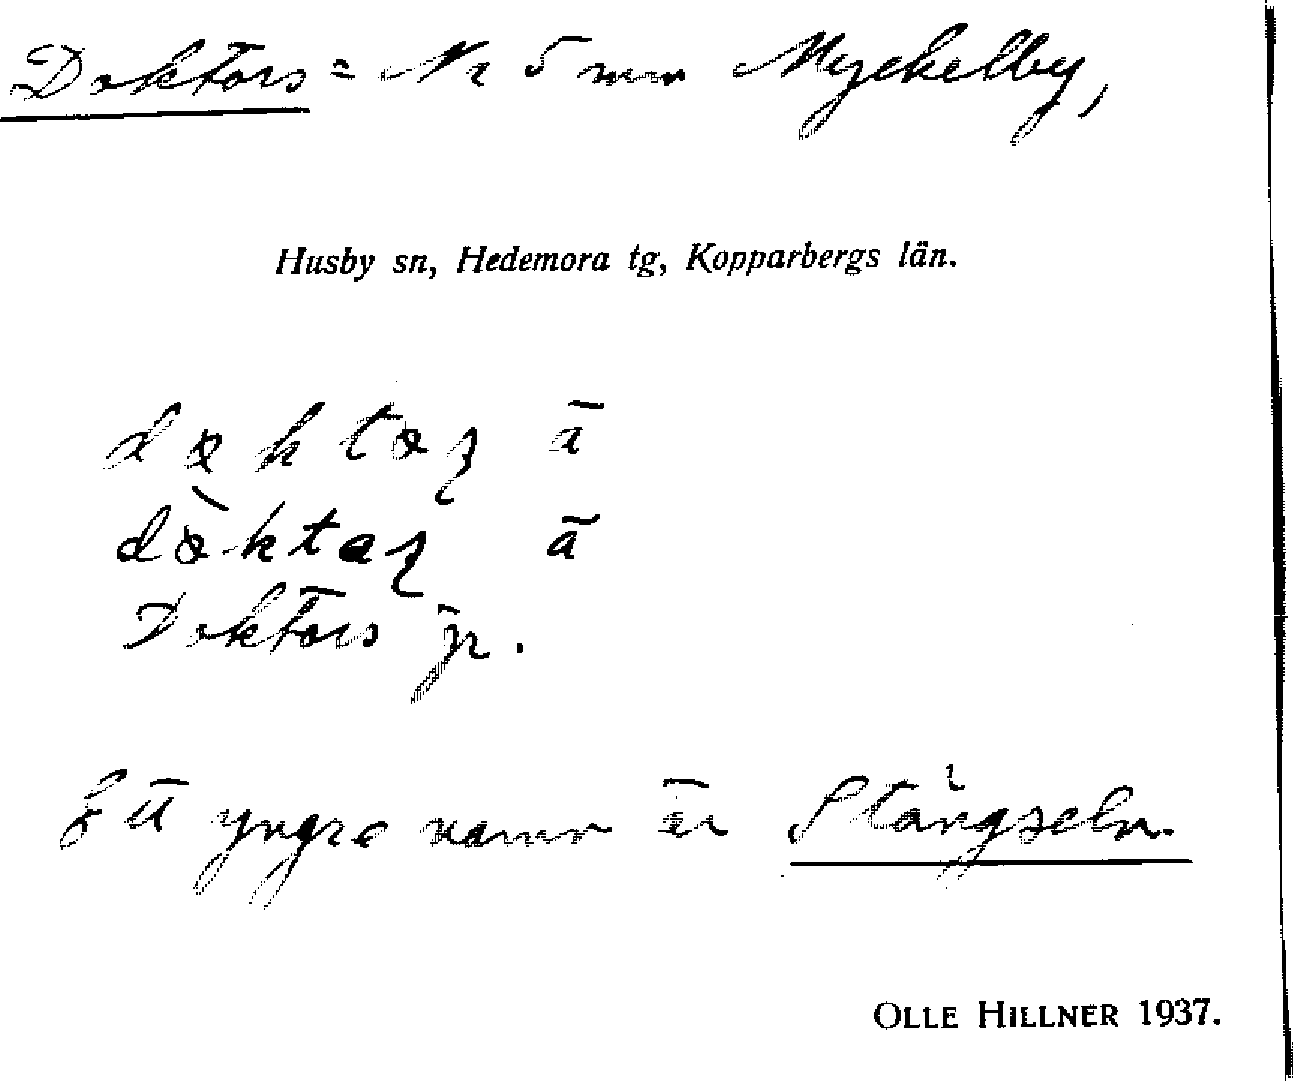 Doktors = Nr 5 inom Myckelby,
Husby sn, Hedemora tg, Kopparbergs län.
ā
ā
Doktors jr.
Ett yngre namn är Stängseln.
OLLE HILLNER 1937.